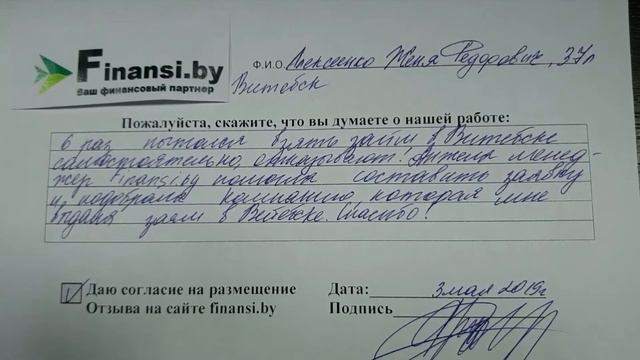 Finansi.by
Ваш финансовый партнер
Ф.И.О. Алексеенко Женя Федорович, 37л
Витебск
Пожалуйста, скажите, что вы думаете о нашей работе:
6 раз пытался взять займ в Витебске
самостоятельно, отказывают! Анжела менед-
жер Finansi.by помогла составить заявку
и подобрала компанию, которая мне
выдала заем в Витебске. Спасибо!
V Даю согласие на размещение
Отзыва на сайте finansi.by
Дата: 3 мая 2019г
Подпись